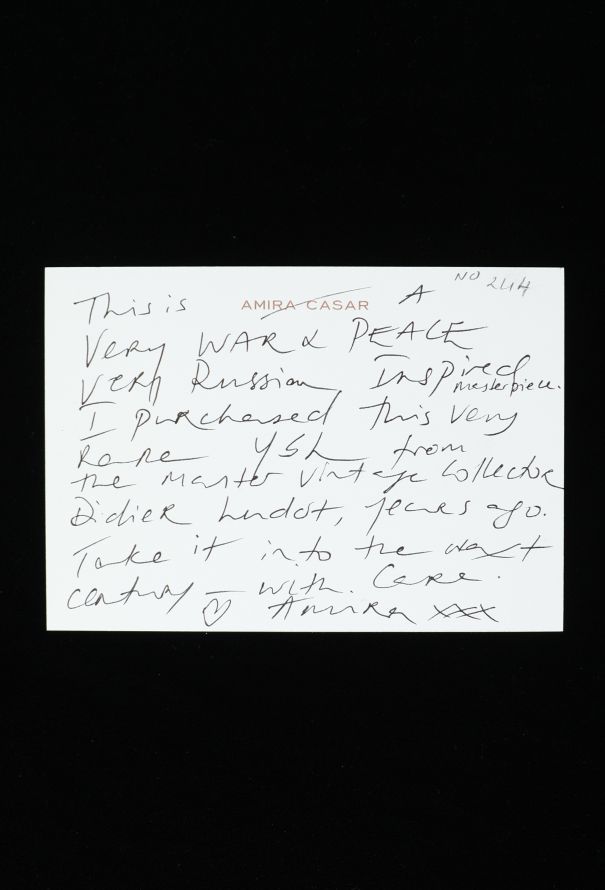 NO 244
This is AMIRA CASAR A
Very WAR & PEACE
Very Russian, Inspired masterpiece.
I purchased this very
Rare YSL from
the Master Vintage Collector
Didier Ludot, years ago.
Take it into the next
century – with. Care.
♡ Amira xxx